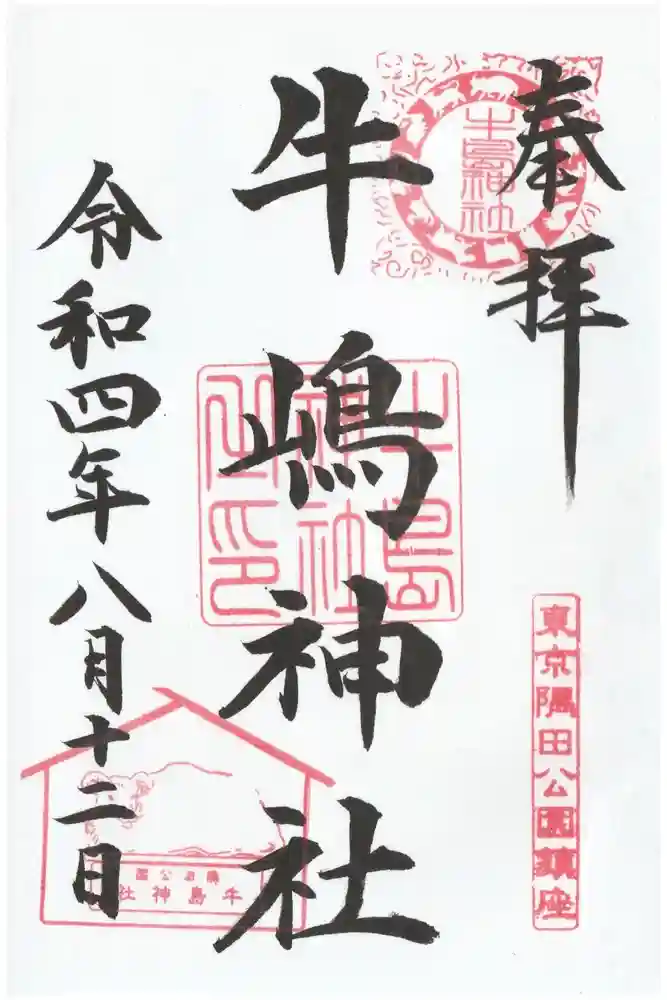 奉拝
牛島神社
東京隅田公園鎮座
牛嶋神社
牛島神社之印
令和四年八月十二日
隅田公園
牛島神社